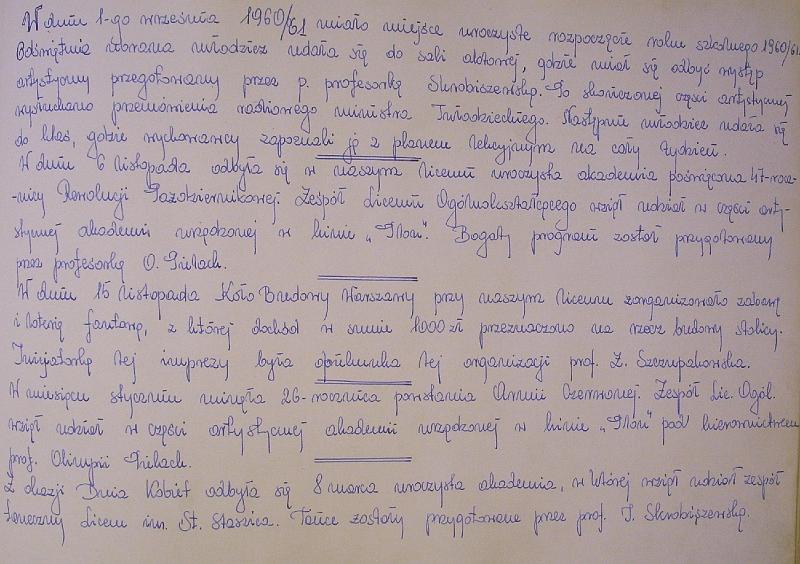 W dniu 1-go września 1960/61 miało miejsce uroczyste rozpoczęcie roku szkolnego 1960/61.
Odświętnie ubrana młodzież udała się do sali złotowej, gdzie miał się odbyć występ
artystyczny przygotowany przez p. profesorkę Skrobiszewską. Po skończonej części artystycznej
wysłuchano przemówienia radiowego ministra Tułodzieckiego. Następnie młodzież udała się
do klas, gdzie wychowawcy zapoznali ją z planem lekcyjnym na cały tydzień.
W dniu 6 listopada odbyła się w naszym liceum uroczysta akademia poświęcona 47-rocz-
-nicy Rewolucji Październikowej. Zespół Liceum Ogólnokształcącego wziął udział w części arty-
stycznej akademii urządzonej w kinie „Płoń". Bogaty program został przygotowany
przez profesorkę O. Gielach.
W dniu 15 listopada Koło Budowy Warszawy przy naszym liceum zorganizowało zabawę
i loterię fantową, z której dochód w sumie 1000 zł przeznaczono na rzecz budowy stolicy.
Inicjatorką tej imprezy była opiekunka tej organizacji prof. Z. Szczupakowska.
W miesiącu styczniu minęła 26-rocznica powstania Armii Czerwonej. Zespół Lic. Ogól.
wziął udział w części artystycznej akademii urządzonej w kinie „Płoń" pod kierownictwem
prof. Olimpii Gielach.
Z okazji Dnia Kobiet odbyła się 8 marca uroczysta akademia, w której wziął udział zespół
taneczny Liceum im. St. Staszica. Tańce zostały przygotowane przez prof. J. Skrobiszewską.